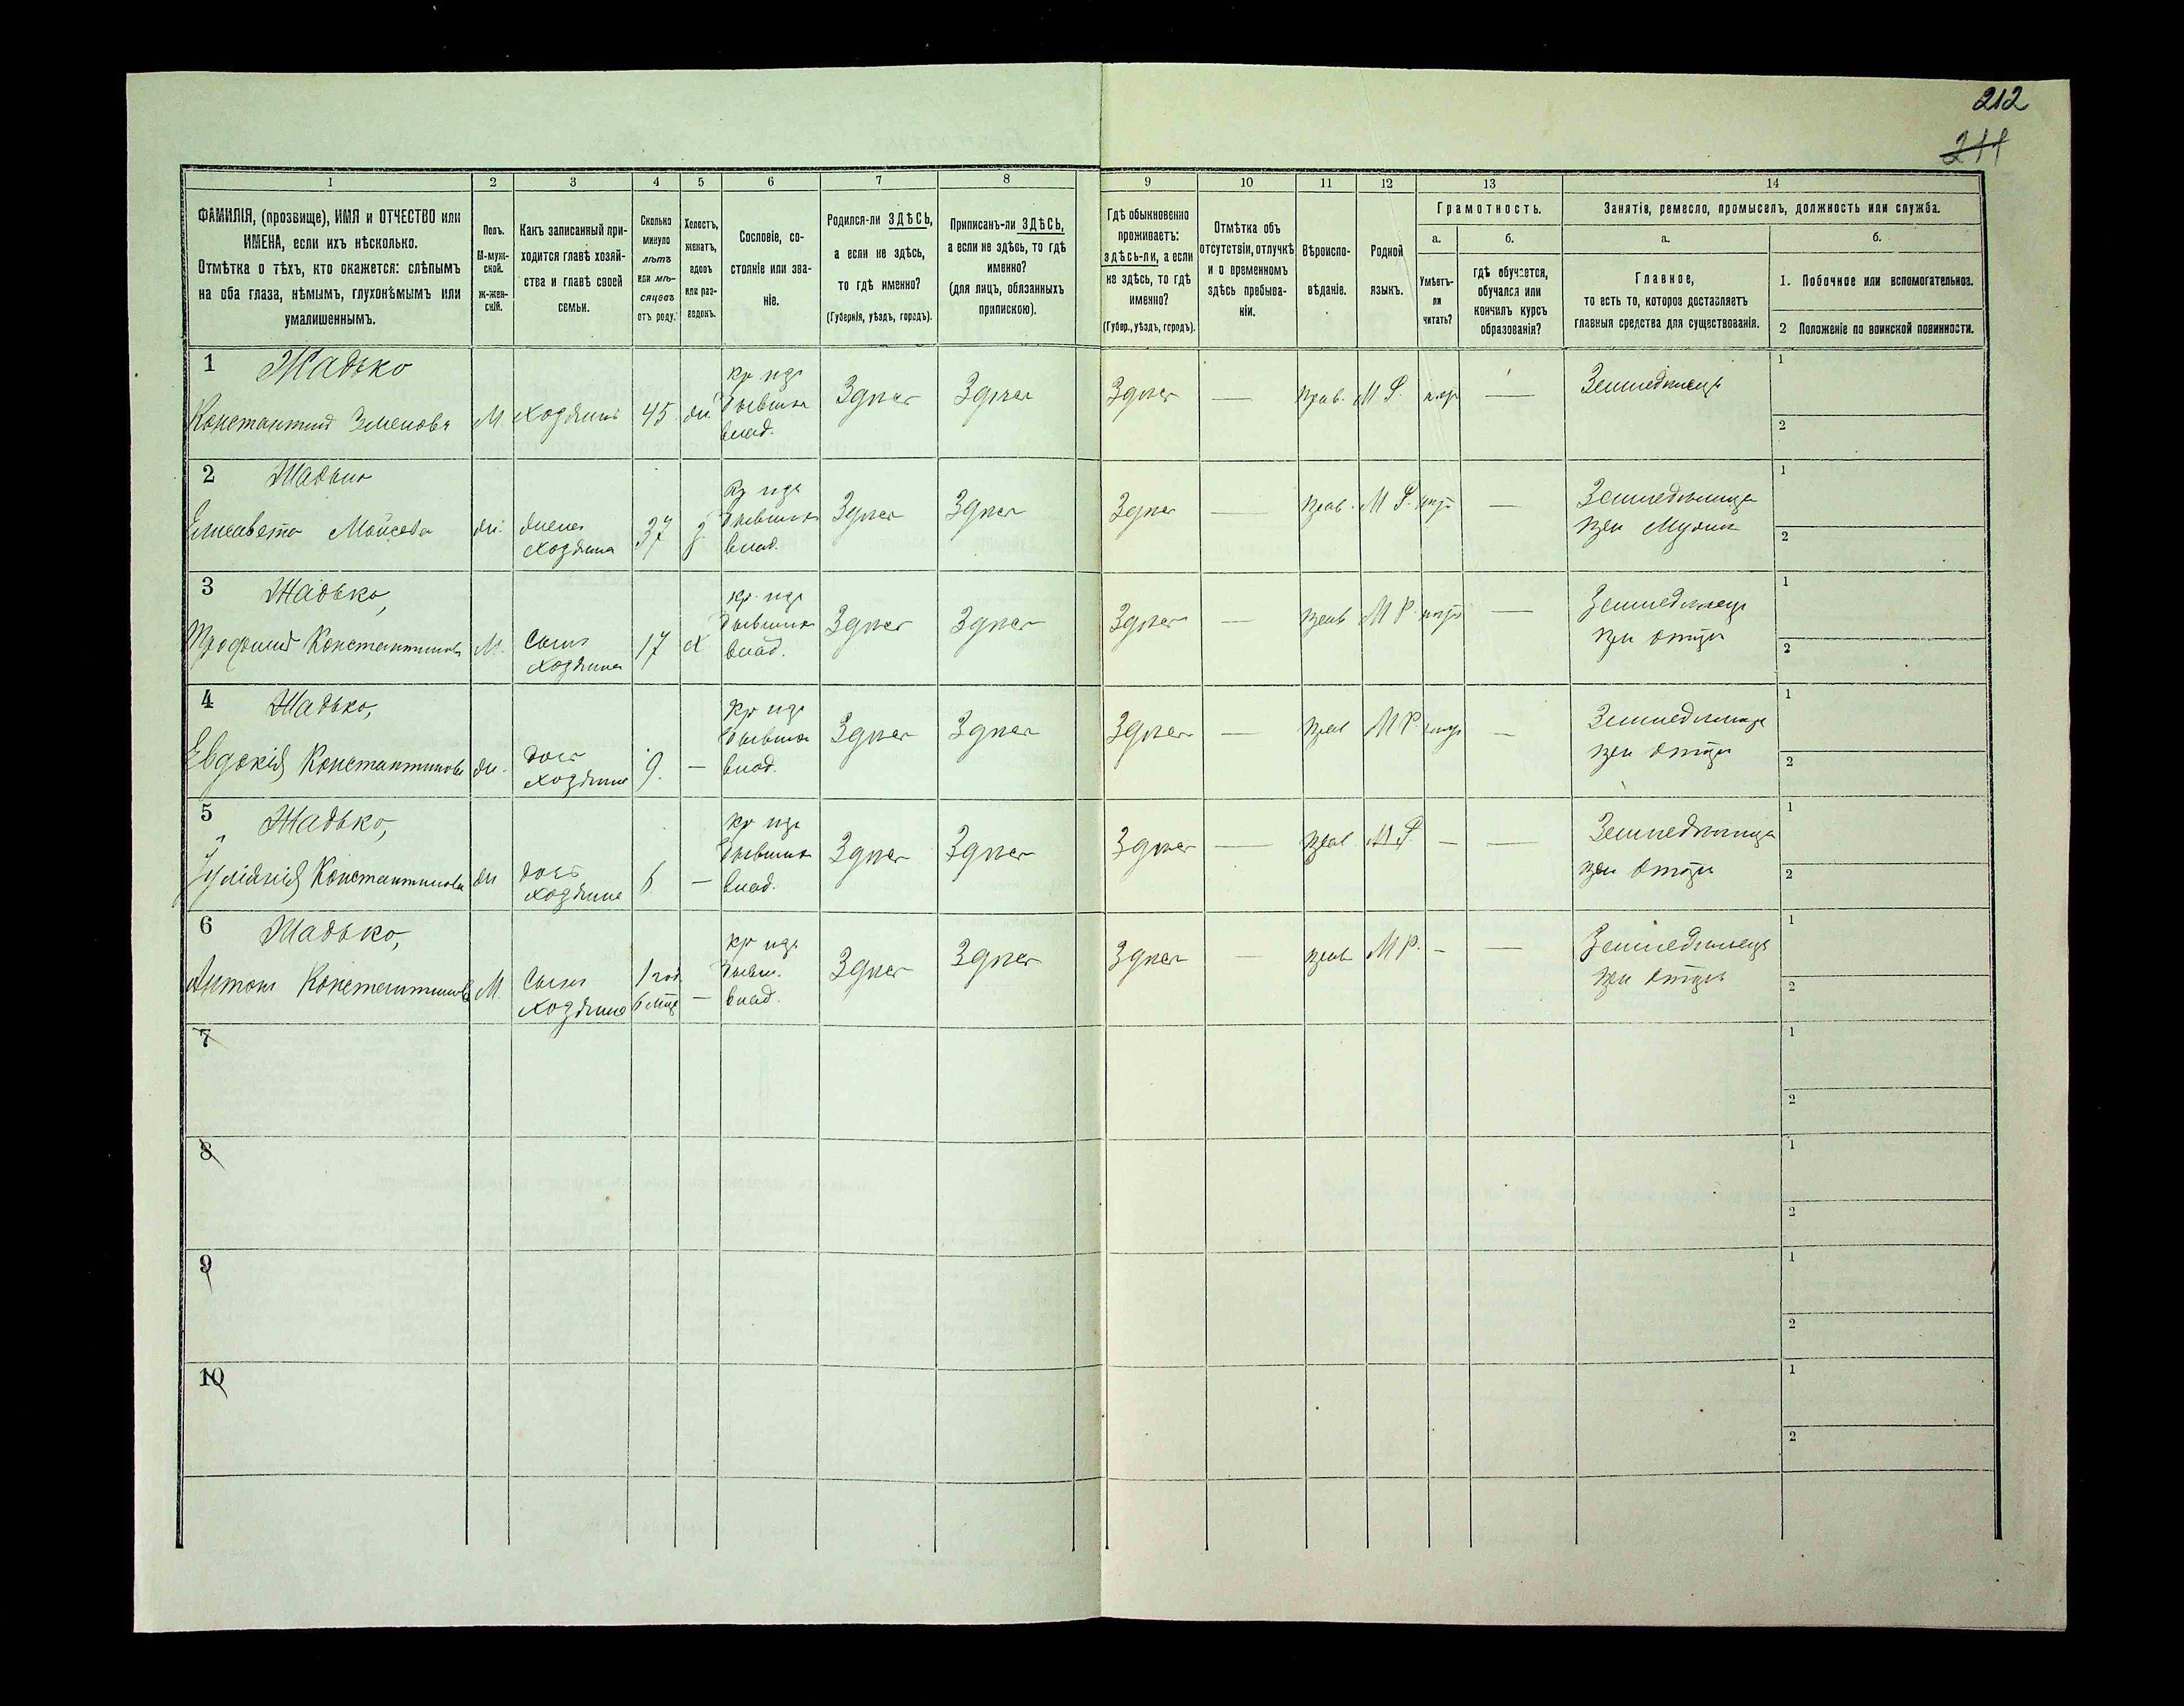 212
211
1
2
3
4
5
6
7
8
9
10
11
12
13
14
ФАМИЛІЯ, (прозвище), ИМЯ и ОТЧЕСТВО или
ИМЕНА, если ихъ нѣсколько.
Отмѣтка о тѣхъ, кто окажется: слѣпымъ
на оба глаза, нѣмымъ, глухонѣмымъ или
умалишеннымъ.
Полъ.
М-муж-
ской.
ж-жен-
скій.
Какъ записанный при-
ходится главѣ хозяй-
ства и главѣ своей
семьи.
Сколько
минуло
лѣтъ
или мѣ-
сяцевъ
отъ роду.
Холостъ,
женатъ,
вдовъ
или раз-
веденъ.
Сословіе, со-
стояніе или зва-
ніе.
Родился-ли ЗДѢСЬ,
а если не здѣсь,
то гдѣ именно?
(Губернія, уѣздъ, городъ).
Приписанъ-ли ЗДѢСЬ,
а если не здѣсь, то гдѣ
именно?
(для лицъ, обязанныхъ
припискою).
Гдѣ обыкновенно
проживаетъ:
здѣсь-ли, а если
не здѣсь, то гдѣ
именно?
(Губер., уѣздъ, городъ).
Отмѣтка объ
отсутствіи, отлучкѣ
и о временномъ
здѣсь пребыва-
ніи.
Вѣроиспо-
вѣданіе.
Родной
языкъ.
Грамотность.
а.
Умѣетъ-
ли
читать?
б.
гдѣ обучается,
обучался или
кончилъ курсъ
образованія?
Занятія, ремесло, промыселъ, должность или служба.
а.
Главное,
то есть то, которое доставляетъ
главныя средства для существованія.
б.
1. Побочное или вспомогательное.
2 Положеніе по воинской повинности.
1 Жадько
Константинъ М. хозяинъ 45 ж кр изъ бывших влад. Здѣсь Здѣсь Здѣсь — Прав. М Р. — Земледѣлецъ 1
2
2 Жадько
Елисавета Мойсеева ж. жена хозяина 37 кр изъ бывших влад. Здѣсь Здѣсь Здѣсь — Прав. М Р. — Земледѣлица при мужѣ 1
2
3 Жадько,
Трофимъ Константиновъ М. сынъ хозяина 17 х кр изъ бывших влад. Здѣсь Здѣсь Здѣсь — Прав М Р. — Земледѣлецъ при отцѣ 1
2
4 Жадько,
Евдокія Константинова ж. дочь хозяина 9. — кр изъ бывших влад. Здѣсь Здѣсь Здѣсь — Прав М Р. — Земледѣлица при отцѣ 1
2
5 Жадько,
Іуліанія Константинова ж дочь хозяина 6 — кр изъ бывших влад. Здѣсь Здѣсь Здѣсь — Прав. М Р. — — Земледѣлица при отцѣ 1
2
6 Жадько,
Антонъ Константиновъ М. сынъ хозяина 1 год 6 мѣц — кр изъ бывш. влад. Здѣсь Здѣсь Здѣсь — Прав М Р. — — Земледѣлецъ при отцѣ 1
2
7 1
2
8 1
2
9 1
2
10 1
2